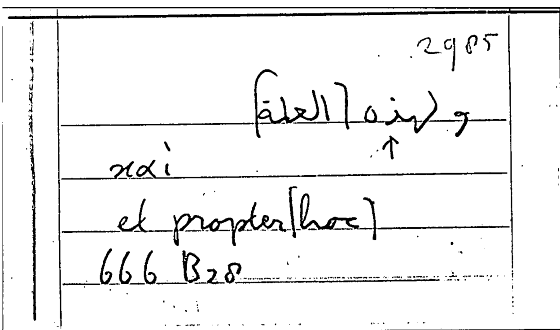 2985
و [العلة]
καὶ
et propter [hoc]
666 B28